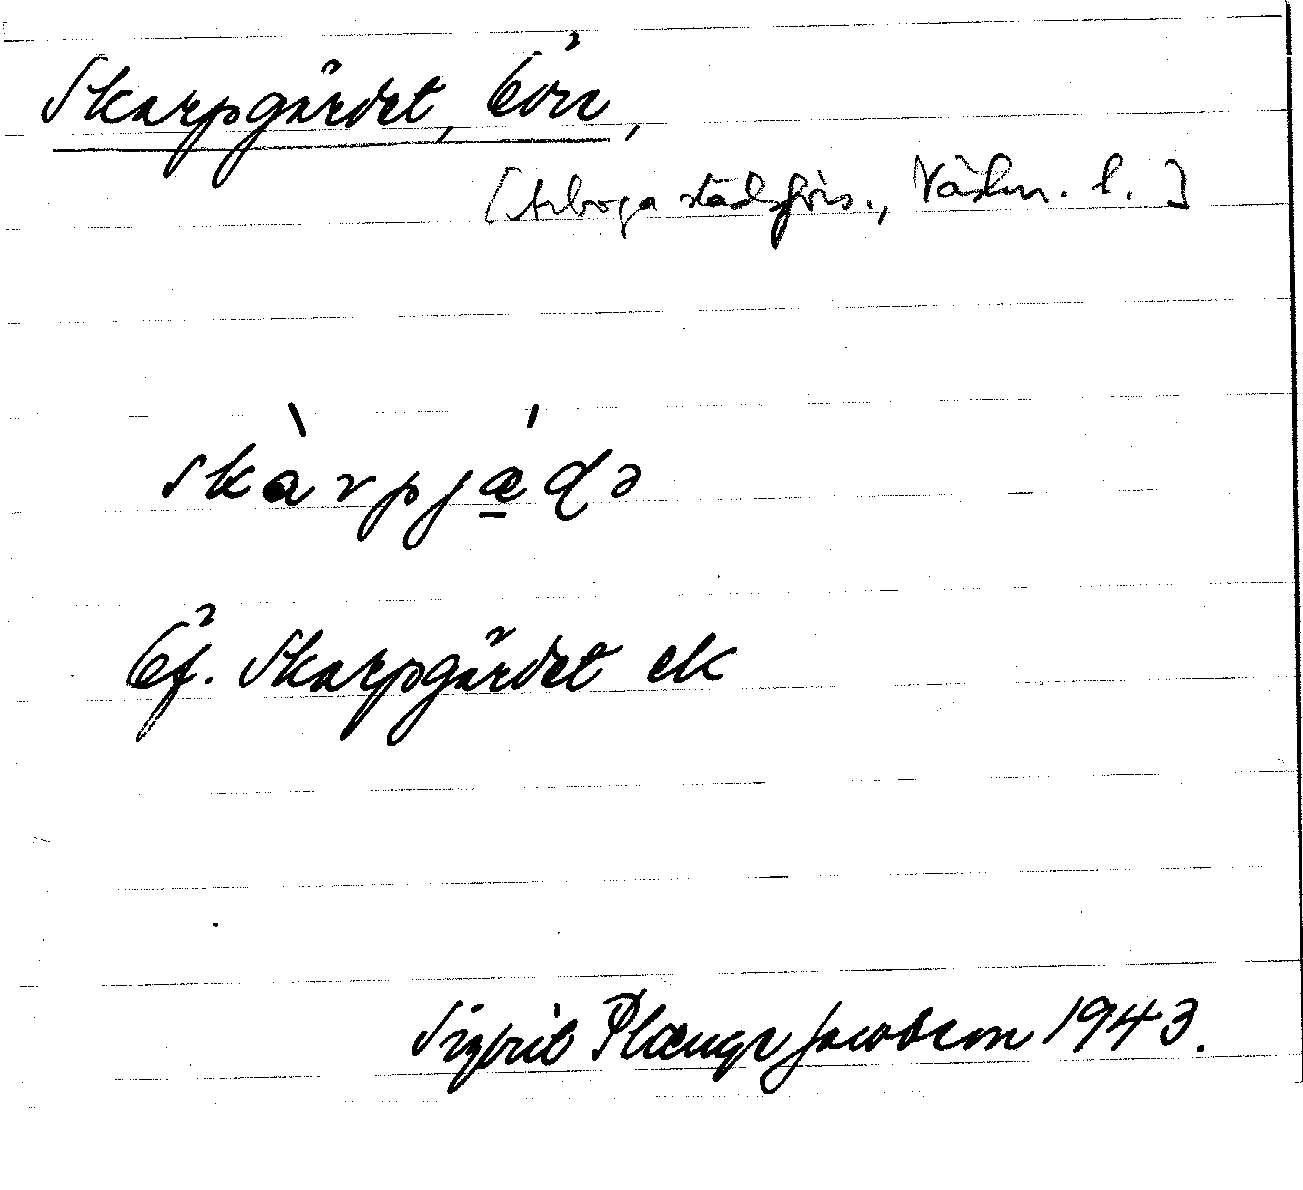 Skarpgärdet, Örr,
[Arboga stadsförs., Västm. l.]
skàrpjǽḍə
Öf. Skarpgärdet ek
Sigbrit Plænge Jacobson 1943.